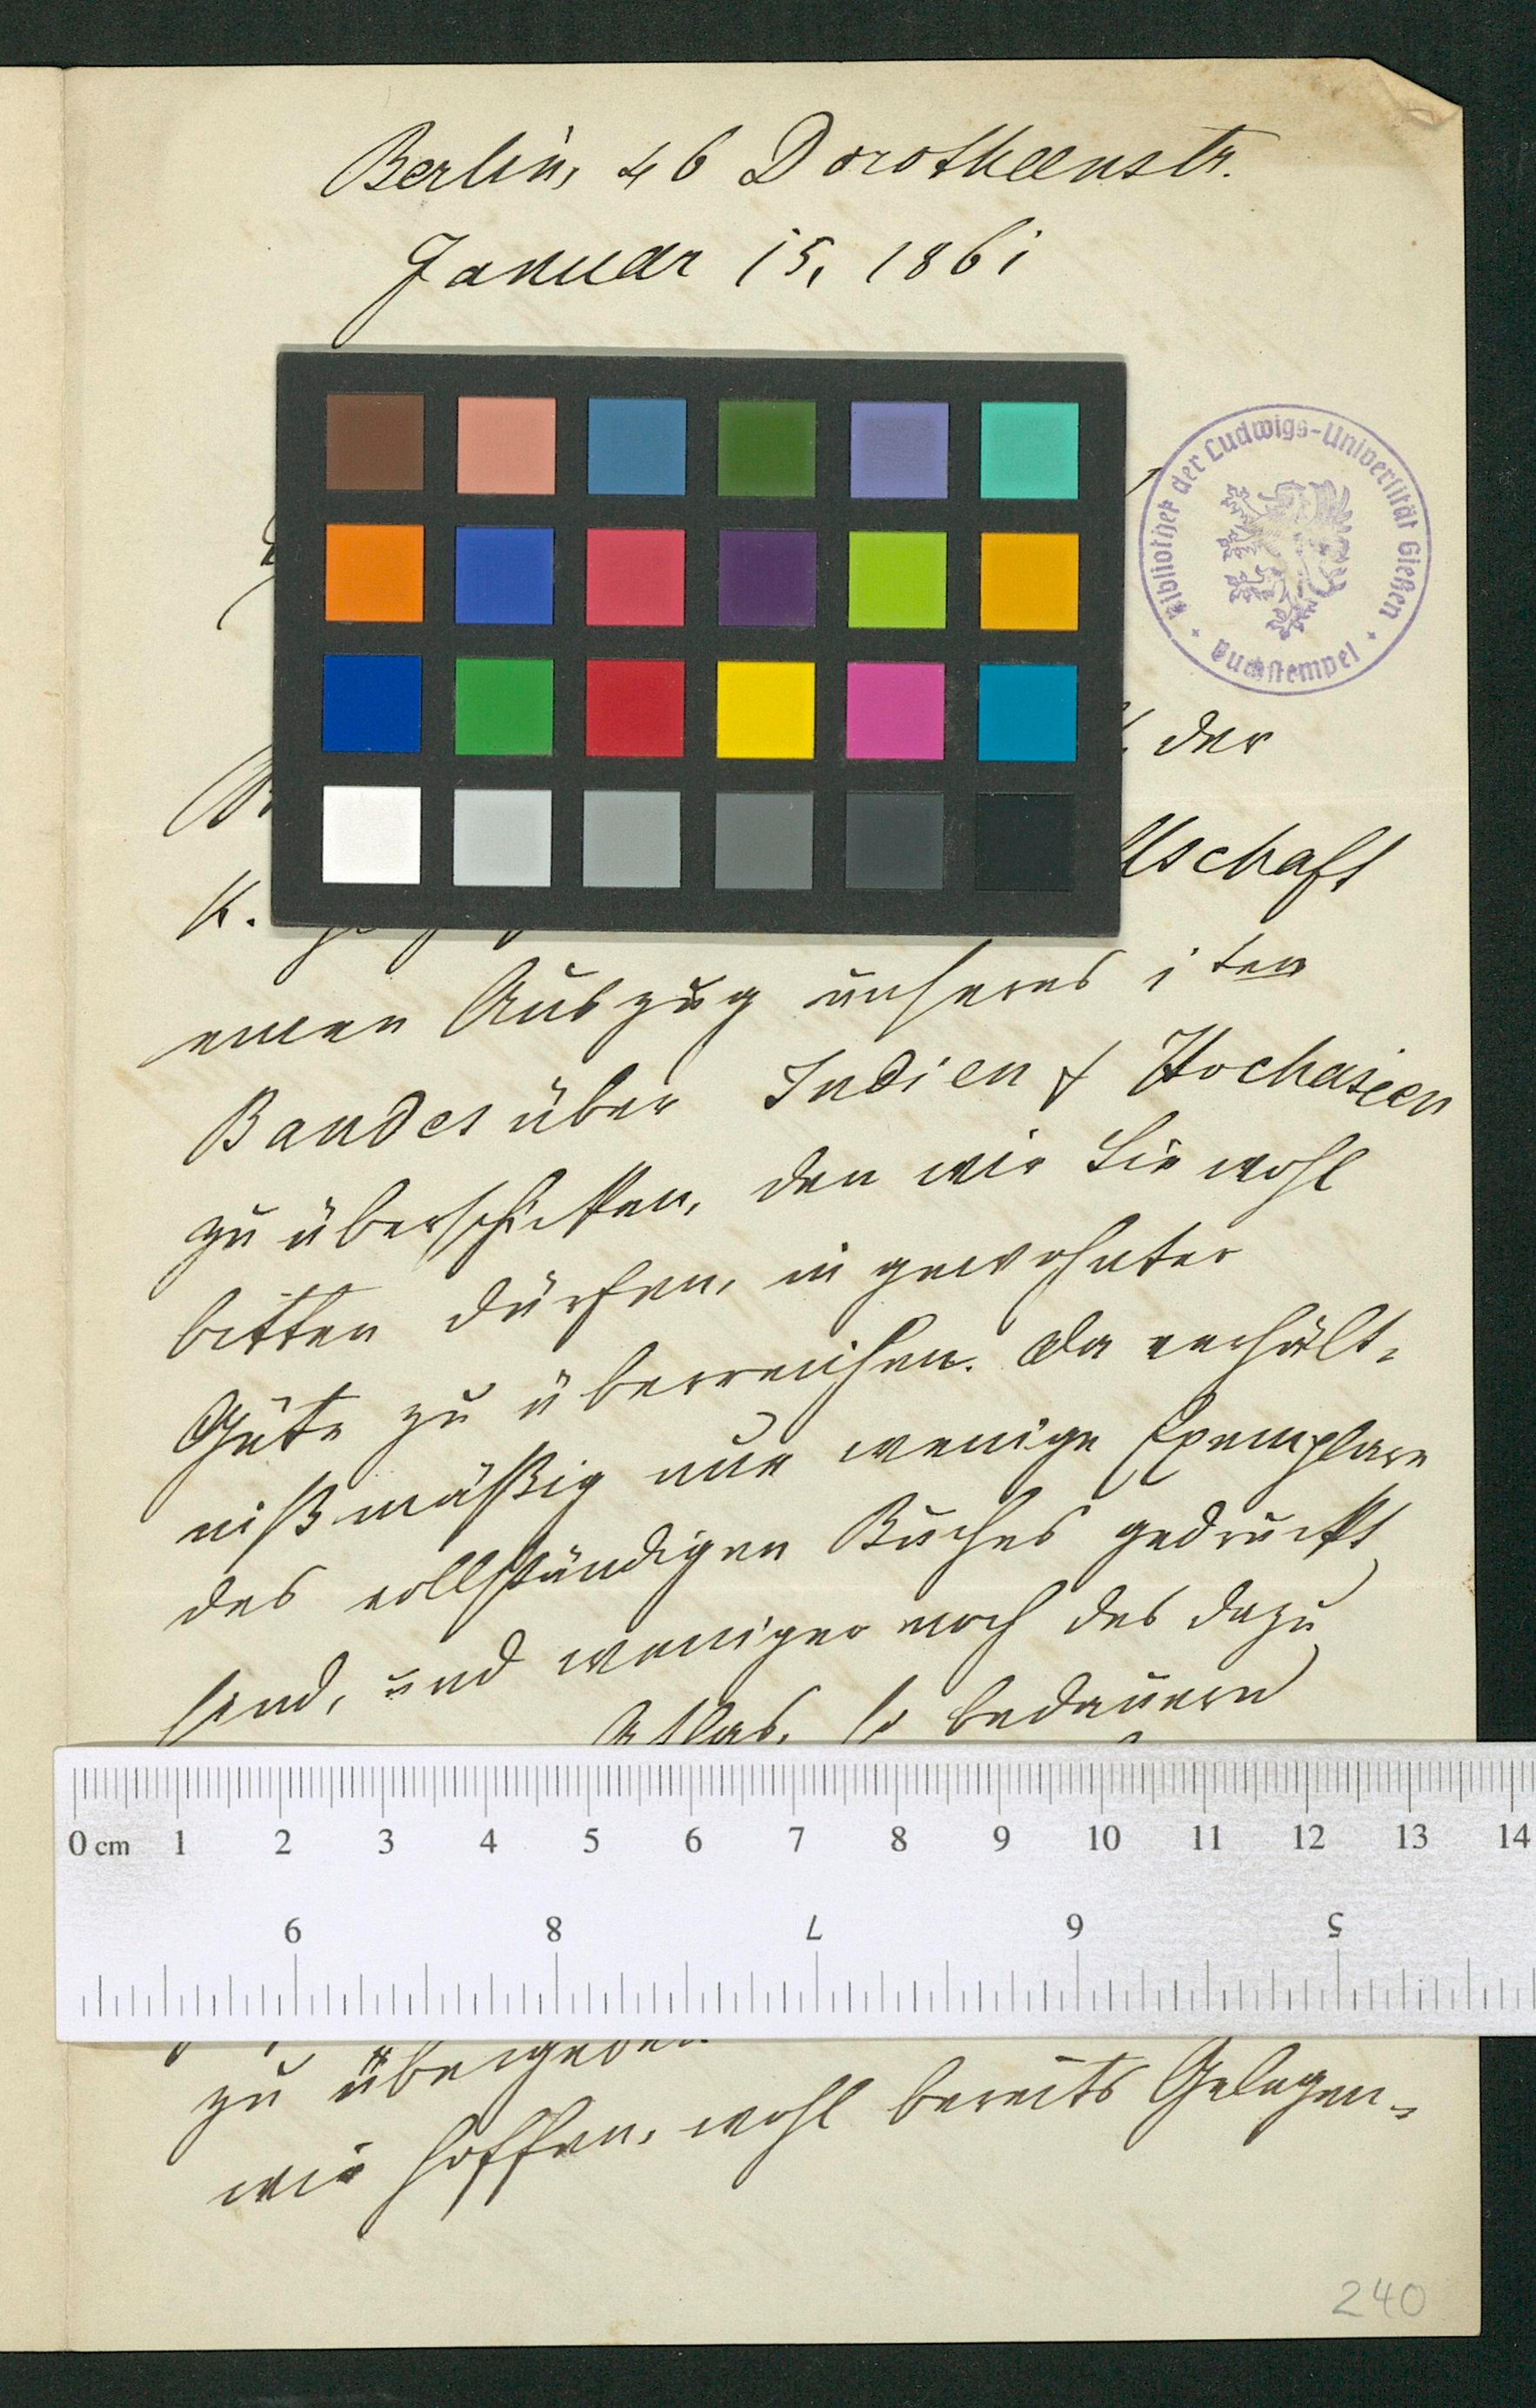 Berlin, 46 Dorotheenstr.
Januar 15, 1861
Bibliothek der Ludwigs-Universität Gießen
Buchstempel
der
llschaft
K.
einen Auszug unseres 1ten
Bandes über Indien & Hochasien
zu überschicken, den wir Sie wohl
bitten dürfen, in gewohnter
Güte zu überreichen. Da verhält-
nißmäßig nur wenige Exemplare
des vollständigen Buches gedruckt
sind, und weniger noch des dazu
Atlas, so bedauern
0 cm 1 2 3 4 5 6 7 8 9 10 11 12 13 14
9 8 7 6 5
zu übergeben
wir hoffen, wohl bereits Gelegen-
240